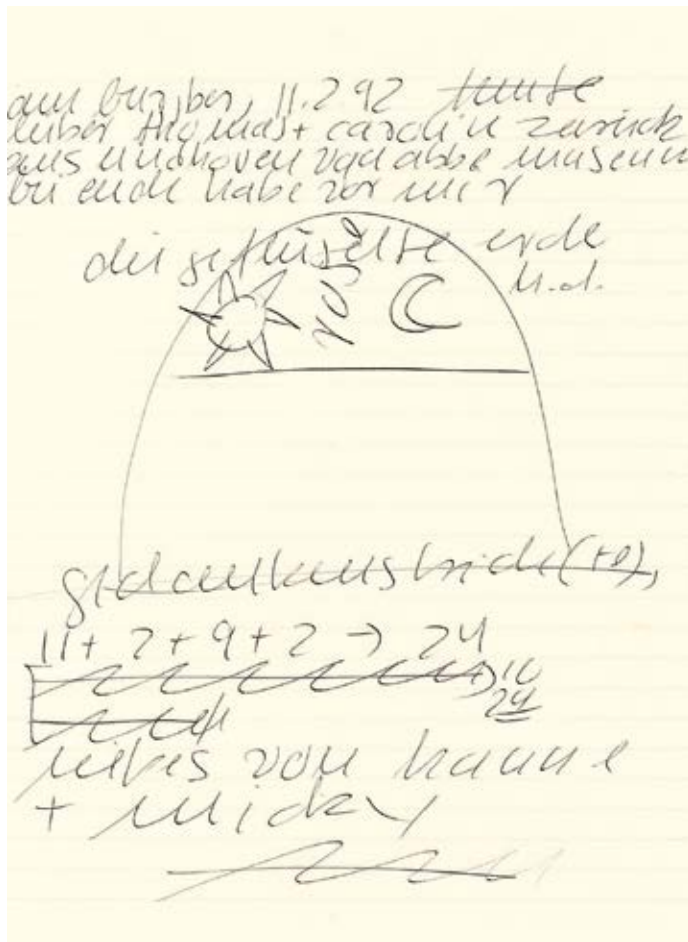 am burgberg, 11.2.92 heute
lieber thomas + carolin zurück
aus eindhoven van abbe museum
bei ende habe vor mir
die geflügelte erde
m.d.
11+2+9+2 → 24
10
24
liebes von hanne
+ micky